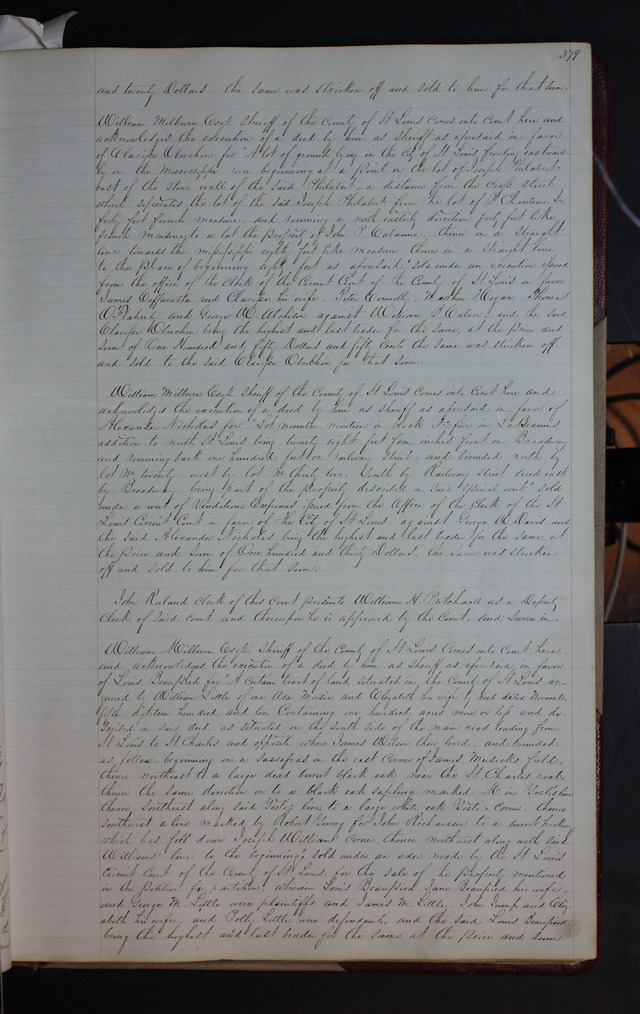 379
and twenty Dollars. the same was stricken off and sold to him for that sum.
William Milburn Esqr. Sheriff of the County of St Louis comes into Court here and
acknowledges the execution of a deed by him as sheriff as aforesaid in favor
of Clarisse Obuchon for "A lot of ground lying in the City of St Louis fronting eastward-
ly on the Mississippi river beginning at a point on the lot of Joseph Philabert
east of the stone wall of the said Philabert, a distance from the cross street
which seperates the lot of the said Joseph Philabert from the lot of P. Chouteau Jr.
forty feet french measure, and running a north easterly direction forty feet like
french measure to a lot the property of John P. Cabanne, thence in a straight
line towards the mississippi eighty feet like measure thence in a straight line
to the place of beginning eighty feet as aforesaid" sold under an execution issued
from the office of the Clerk of the Circuit Court of the County of St Louis in favor
James and Clarisse his wife, Peter Hogan, Thomas
O'Flaherty and George W. Atchison against William P. and the said
Clarisse Obuchon being the highest and last bidder for the same, at the price and
sum of One Hundred and fifty Dollars and fifty cents the same was stricken off
and sold to the said Clarisse Obuchon for that sum.
William Milburn Esqr. Sheriff of the County of St Louis comes into Court here and
acknowledges the execution of a deed by him as sheriff as aforesaid in favor of
Alexander Nicholas for "Lot number nineteen in block No. five in LaBeaums
addition to north St Louis being twenty eight feet four inches front on Broadway
and running back one hundred feet on railway street, and bounded north by
lot No. twenty west by lot No. thirty two, South by Railway Street and east
by Broadway being part of the property described in said special writ" sold
under a writ of Venditioni Exponas issued from the Office of the Clerk of the St
Louis Circuit Court in favor of The City of St Louis against George W. Davis and
the said Alexander Nicholas being the highest and last bidder for the same, at
the price and sum of One Hundred and thirty Dollars, the same was stricken
off and sold to him for that sum.
John Ruland Clerk of this Court presents William H. Pritchard as a Deputy
Clerk of said Court and thereupon he is approved by the Court, and sworn in.
William Milburn Esqr. Sheriff of the County of St Louis comes into Court here
and acknowledges the execution of a deed by him as sheriff as aforesaid in favor
of Louis Beaufried for "A certain tract of land situated in the County of St Louis ac-
quired by William Little of one Asa Musick and Elizabeth his wife by deed dated November
fifth eighteen hundred and ten Containing one hundred acres more or less and de-
scribed in said deed as situated on the south side of the main road leading from
St Louis to St Charles and opposite where James Wilson then lived, and bounded
as follows, beginning on a sassafras in the east corner of James Musicks field,
thence northeast to a large dead burnt black oak near the St Charles road,
thence the same direction on to a black oak sapling marked M in line
thence, southeast along said line to a large white oak corner, thence
southwest a line marked by Robert Young for John Richardson to a burnt
which has fell down Joseph Williams corner thence northwest along with said
Williams' line to the beginning," sold under an order made by the St Louis
Circuit Court of the County of St Louis, for the sale of the property mentioned
in the petition for partition, wherein Louis Beaufried Jane Beaufried his wife,
and George M. Little were plaintiffs and James M. Little, John Jump and Eliz-
abeth his wife, and Polly Little were defendants, and the said Louis Beaufried
being the highest and last bidder for the same at the price and sum